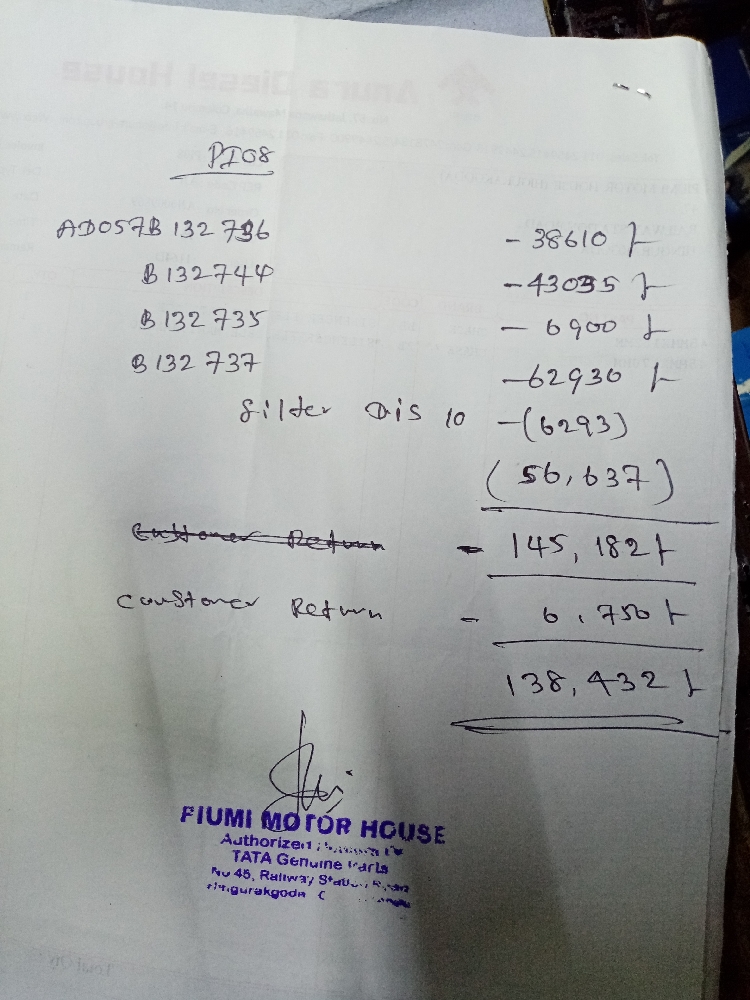 PI08
AD057B132736 - 38610/-
B132744 - 43035/-
B132735 - 6900/-
B132737 - 62930/-
Filter Dis 10 - (6293)
(56,637)
Custtoner Return - 145,182/-
Coustoner Return - 6,750/-
138,432/-
FIUMI MOTOR HOUSE
Authorized
TATA Genuine Parts
No 45, Railway Station Road
Hingurakgoda